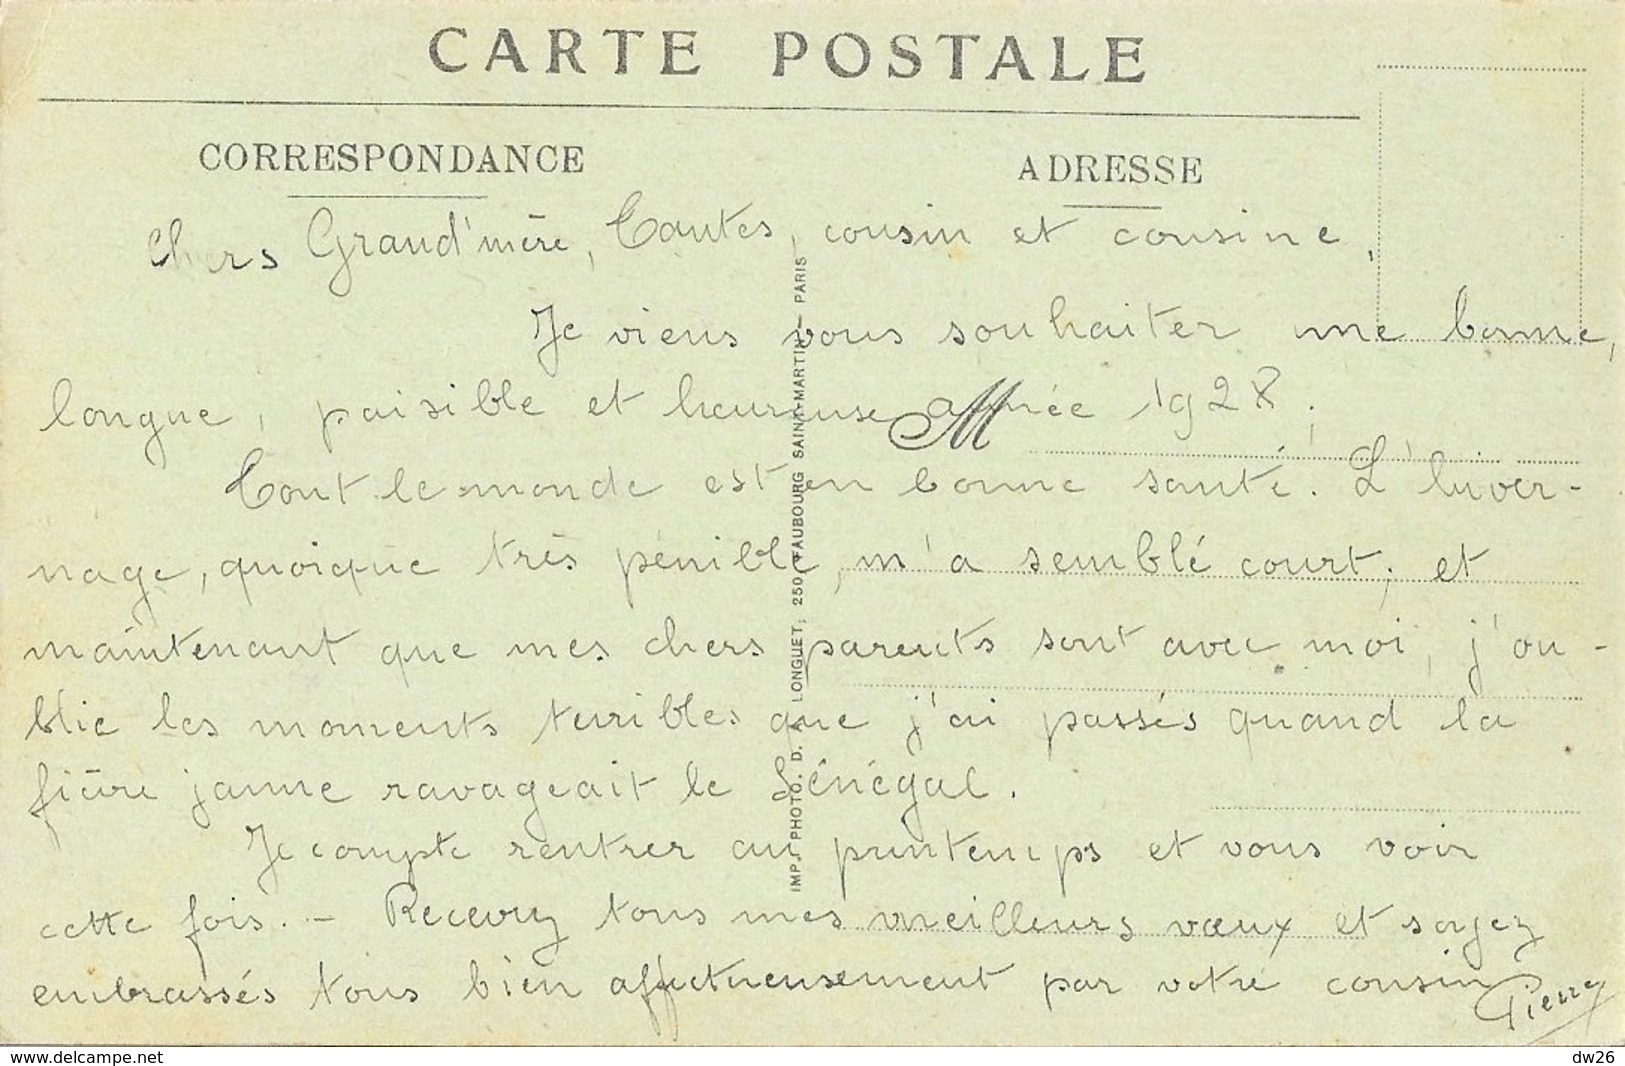 CARTE POSTALE
CORRESPONDANCE
ADRESSE
Chers Grand'mère, Tantes, cousin et cousine,
Je viens vous souhaiter une bonne,
longue, paisible et heureuse année 1928.
M
Tout le monde est en bonne santé. L'hiver-
nage, quoique très pénible, m'a semblé court; et
maintenant que mes chers parents sont avec moi, j'ou-
blie les moments terribles que j'ai passés quand la
fièvre jaune ravageait le Sénégal.
Je compte rentrer au printemps et vous voir
cette fois. - Recevez tous mes meilleurs vœux et soyez
embrassés tous bien affectueusement par votre cousin
Pierre
IMP. PHOTO. D. A. LONGUET, 250 FAUBOURG SAINT-MARTIN - PARIS
www.delcampe.net
dw26